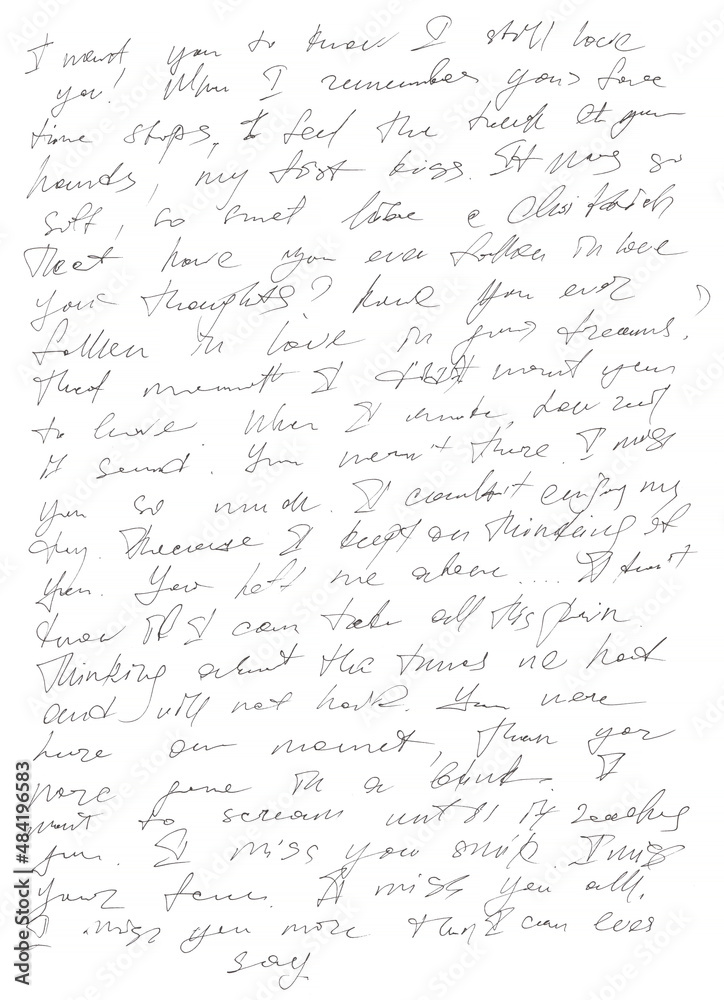 I want you to know I still love
you! When I remember your face
time stops, I feel the touch of your
hands, my first kiss. It was so
soft, so sweet like a
that have you ever fallen in love
your thoughts? have you ever
fallen in love in your dreams?
that moment I didn't want you
to leave When I
it second. You weren't there. I miss
you so much. I couldn't enjoy my
day. Because I kept on thinking of
you. You left me alone.... I don't
know if I can take all this pain
Thinking about the times we had
and will not have. You were
here one moment, then you
were gone in a blink. I
want to scream until it reaches
you. I miss you smile. I miss
your face. I miss you all.
I miss you more than I can ever
say
Adobe Stock | #484196583